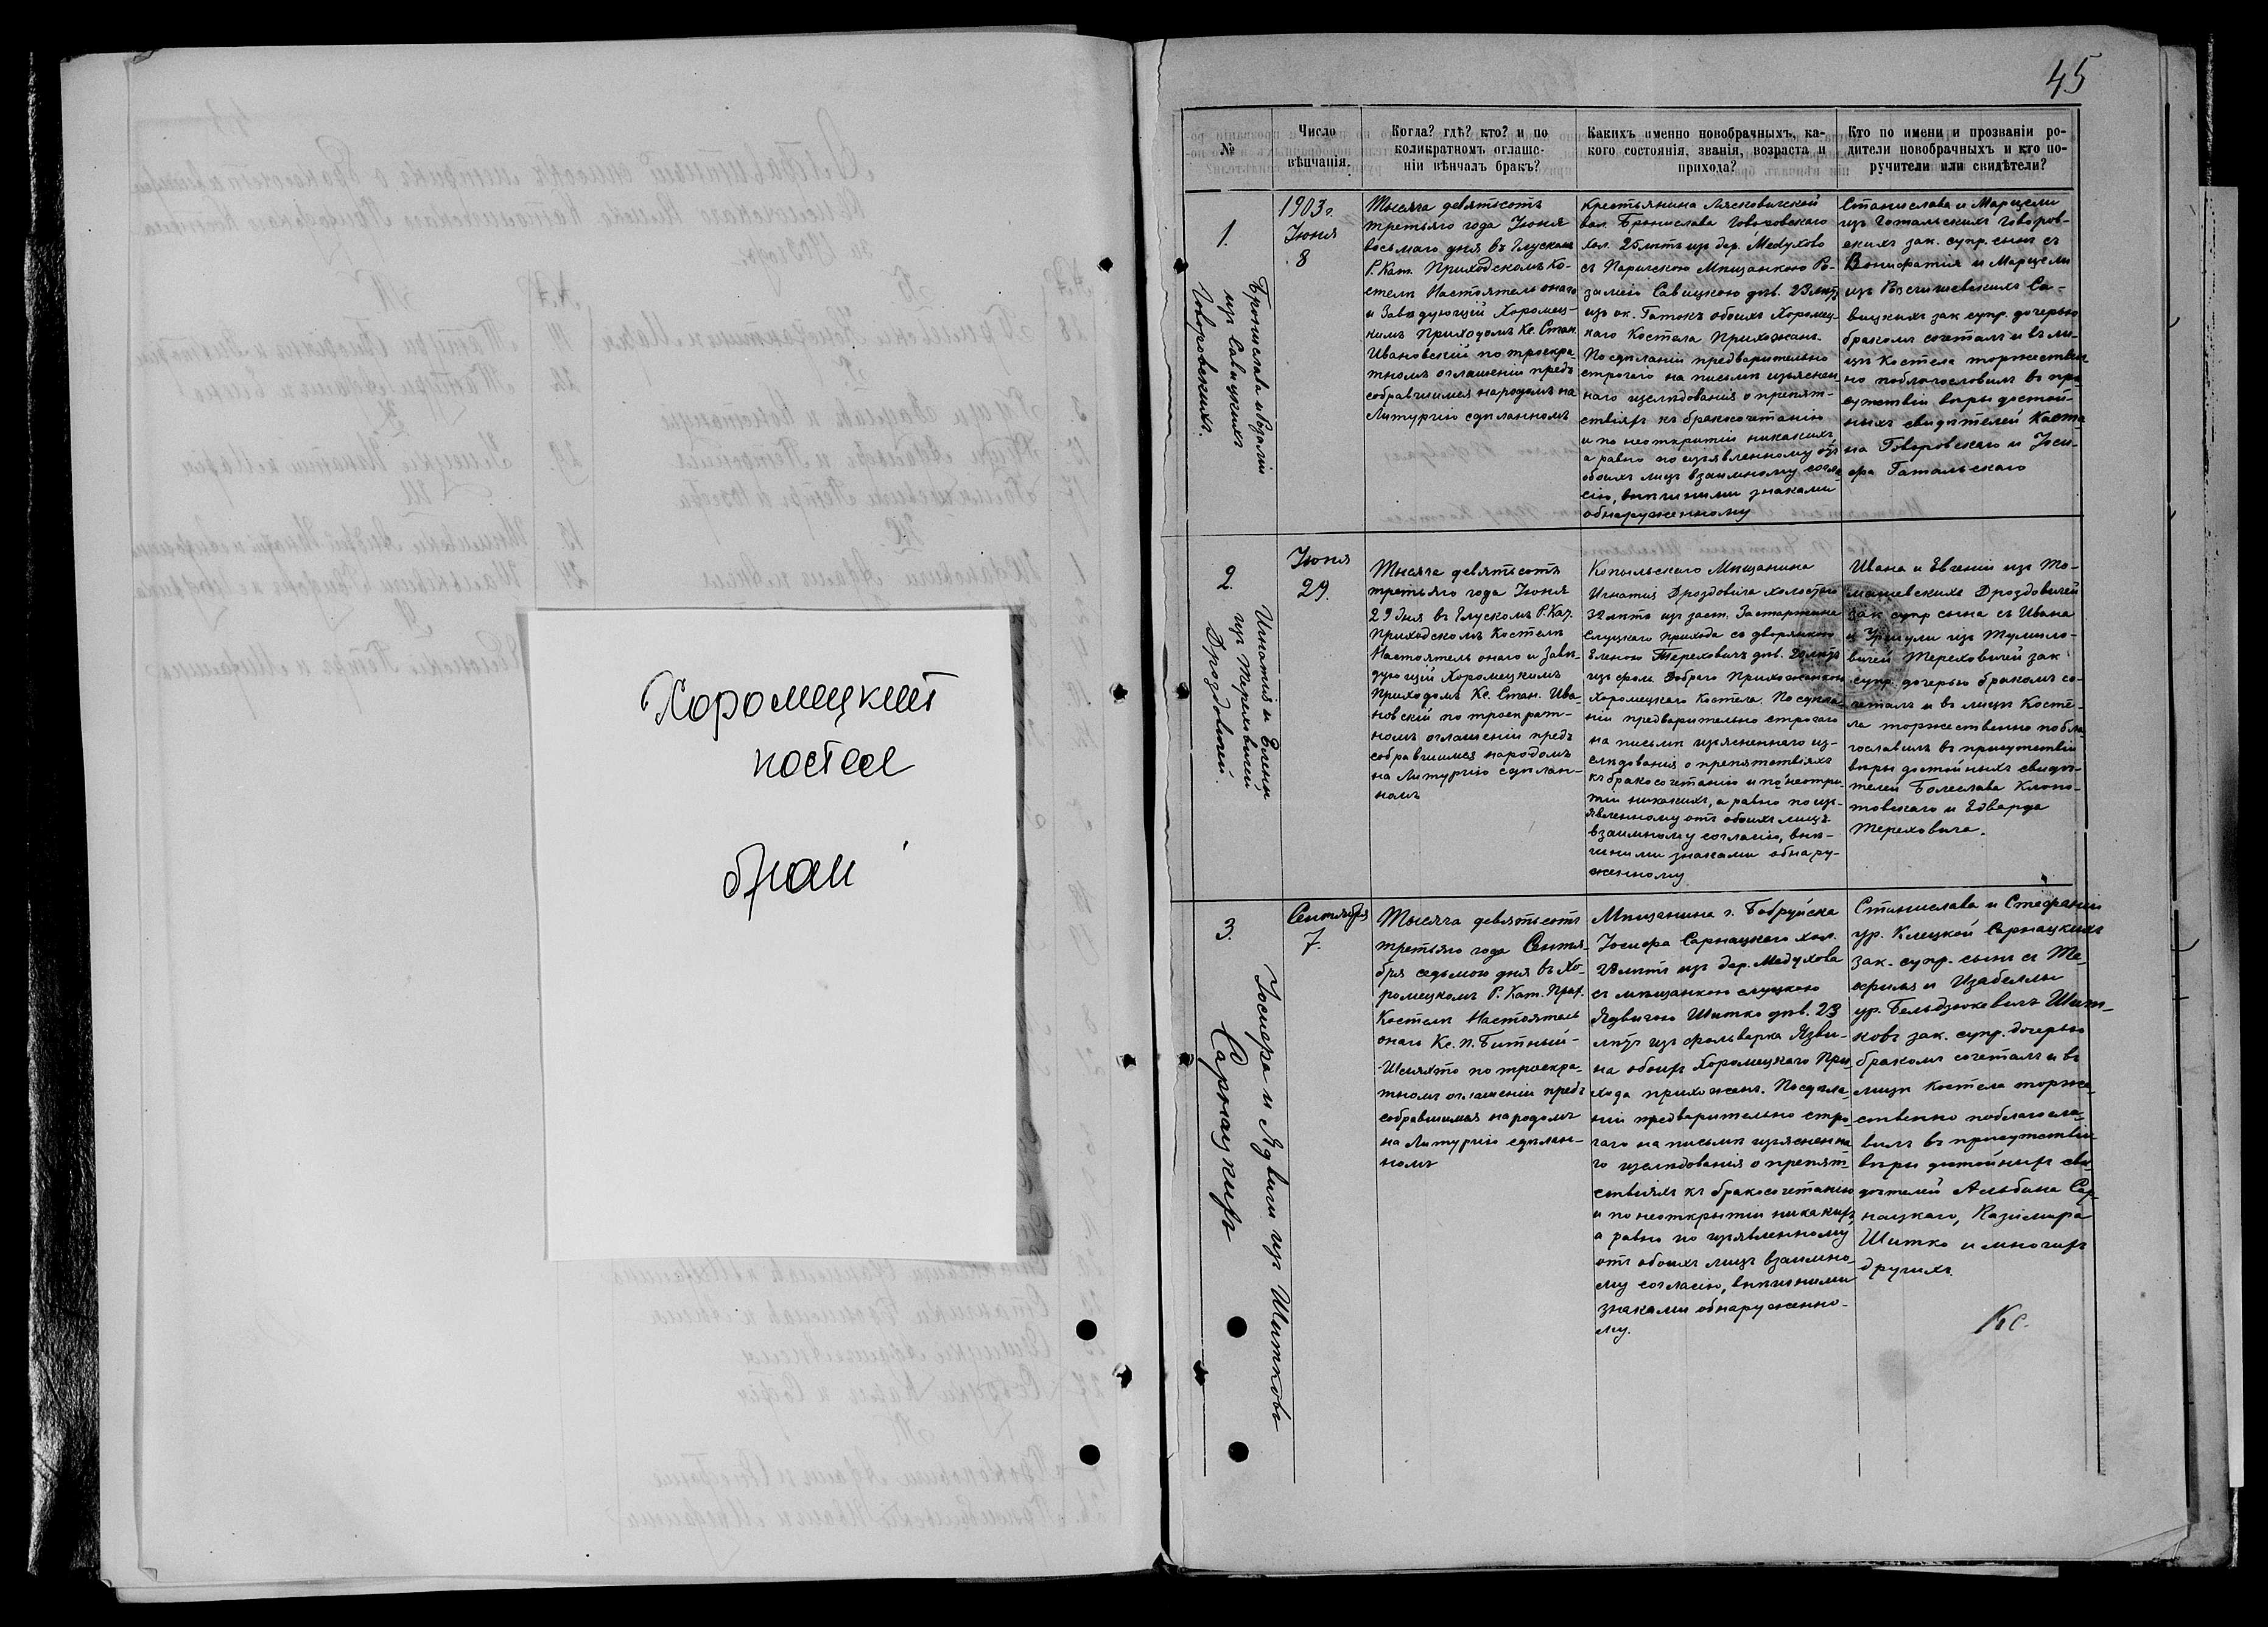 Хоромецкий
костел
брак
45
№
Число
вѣнчанія.
Когда? гдѣ? кто? и по
коликратномъ оглаше-
ніи вѣнчалъ бракъ?
Какихъ именно новобрачныхъ, ка-
кого состоянія, званія, возраста и
прихода?
Кто по имени и прозваніи ро-
дители новобрачныхъ и кто по-
ручители или свидѣтели?
1.
Бронислава и Розаліи
изъ Савицкихъ
Говоровскихъ.
1903 г.
Июня
8
Тысяча девятьсотъ
третьяго года Июня
восьмаго дня въ Глускомъ
Р. Кат. Приходскомъ Ко-
стелѣ Настоятель онаго
и Завѣдующій Хоромец-
кимъ Приходомъ Кс. Стан.
Ивановскій по троекра-
тномъ оглашеніи предъ
собравшимся народомъ на
Литургію сдѣланномъ
Крестьянина Лясковичской
вол. Бронислава Говоровскаго
хол. 25 лѣтъ изъ дер. Медухово
съ Паричскою Мѣщанкою Ро-
заліею Савицкою дѣв. 23 лѣтъ
изъ ок. Гатокъ обоихъ Хоромец-
каго Костела Прихожанъ.
По сдѣланіи предварительно
строгаго на письмѣ изъяснен-
наго изслѣдованія о препят-
ствіяхъ къ бракосочетанію
и по неоткрытіи никакихъ,
а равно по изъявленному отъ
обоихъ лицъ взаимному согла-
сію, внѣшними знаками
обнаруженному
Станислава и Марцели
изъ Гатальскихъ Говоров-
скихъ зак. супр. сына съ
Вонифатія и Марцели
изъ Са-
вицкихъ зак супр. дочерью
бракомъ сочеталъ и въ ли-
цѣ Костела торжествен-
но поблагословилъ въ при-
сутствіи вѣры достой-
ныхъ свидѣтелей Каста-
на Говоровскаго и Іоси-
фа Гатальскаго
2.
Игнатія и Елены
изъ Тереховичей
Дроздовичей.
Июня
29.
Тысяча девятьсотъ
третьяго года Июня
29 дня въ Глускомъ Р. Кат.
Приходскомъ Костелѣ
Настоятель онаго и Завѣ-
дующій Хоромецкимъ
Приходомъ Кс. Стан. Ива-
новскій по троекрат-
номъ оглашеніи предъ
собравшимся народомъ
на Литургію сдѣлан-
номъ
Копыльскаго Мѣщанина
Игнатія Дроздовича холостаго
32 лѣтъ изъ заст. Застаржина
Слуцкаго прихода съ дворянкою
Еленою Тереховичъ дѣв. 20 лѣтъ
изъ фол. Добраго Прихожанкою
Хоромецкаго Костела. По сдѣла-
ніи предварительно строгаго
на письмѣ изъясненнаго из-
слѣдованія о препятствіяхъ
къ бракосочетанію и по неоткры-
тіи никакихъ, а равно по изъ-
явленному отъ обоихъ лицъ
взаимному согласію, внѣ-
шними знаками обнару-
женному
Ивана и Евгеніи изъ То-
машевскихъ Дроздовичей
зак супр сына съ Ивана
и Уршули изъ Тумило-
вичей Тереховичей зак
супр. дочерью бракомъ со-
четалъ и въ лицѣ Косте-
ла торжественно побла-
гословилъ въ присутствіи
вѣры достойныхъ свидѣ-
телей Болеслава Клопо-
товскаго и Эдварда
Тереховича.
3.
Іосифа и Ядвиги изъ Шитковъ
Сарнацкихъ
Сентября
7.
Тысяча девятьсотъ
третьяго года Сентя-
бря седьмого дня въ Хо-
ромецкомъ Р. Кат. Прих.
Костелѣ Настоятель
онаго Кс. П. Битный-
Шляхто по троекра-
тномъ оглашеніи предъ
собравшимся народомъ
на Литургію сдѣлан-
номъ
Мѣщанина г. Бобруйска
Іосифа Сарнацкаго хол.
28 лѣтъ изъ дер. Медухова
съ мѣщанкою слуцкою
Ядвигою Шитко дѣв. 23
лѣтъ изъ фольварка Язви-
на обоихъ Хоромецкаго При-
хода прихожанъ. По сдѣла-
ніи предварительно стро-
гаго на письмѣ изъясненна-
го изслѣдованія о препят-
ствіяхъ къ бракосочетанію
и по неоткрытіи никакихъ,
а равно по изъявленному
отъ обоихъ лицъ взаимно-
му согласію, внѣшними
знаками обнаруженно-
му.
Станислава и Стефаніи
ур. Клецкой Сарнацкихъ
зак. супр. сына съ Те-
офиля и Изабеллы
ур. Бельдзюкевичъ Шит-
ковъ зак. супр. дочерью
бракомъ сочеталъ и въ
лицѣ Костела торже-
ственно поблагосло-
вилъ въ присутствіи
вѣры достойныхъ сви-
дѣтелей Альбина Сар-
нацкаго, Казиміра
Шитко и многихъ
другихъ.
Кс.